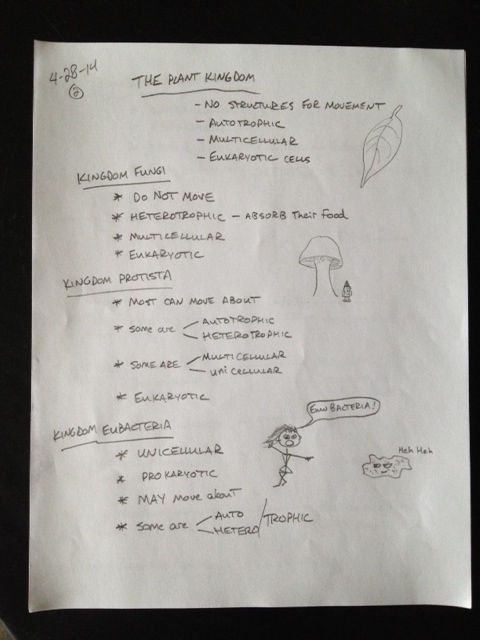 4-28-14
2
THE PLANT KINGDOM
- NO STRUCTURES FOR MOVEMENT
- AUTOTROPHIC
- MULTICELLULAR
- EUKARYOTIC CELLS
KINGDOM FUNGI
* DO NOT MOVE
* HETEROTROPHIC - ABSORB Their Food
* MULTICELLULAR
* EUKARYOTIC
KINGDOM PROTISTA
* MOST CAN MOVE ABOUT
* Some are AUTOTROPHIC
HETEROTROPHIC
* SOME ARE MULTICELLULAR
uniCELLULAR
* EUKARYOTIC
KINGDOM EUBACTERIA
Eww BACTERIA!
Heh Heh
* UNICELLULAR
* PROKARYOTIC
* MAY Move about
* Some are AUTO
HETERO / TROPHIC